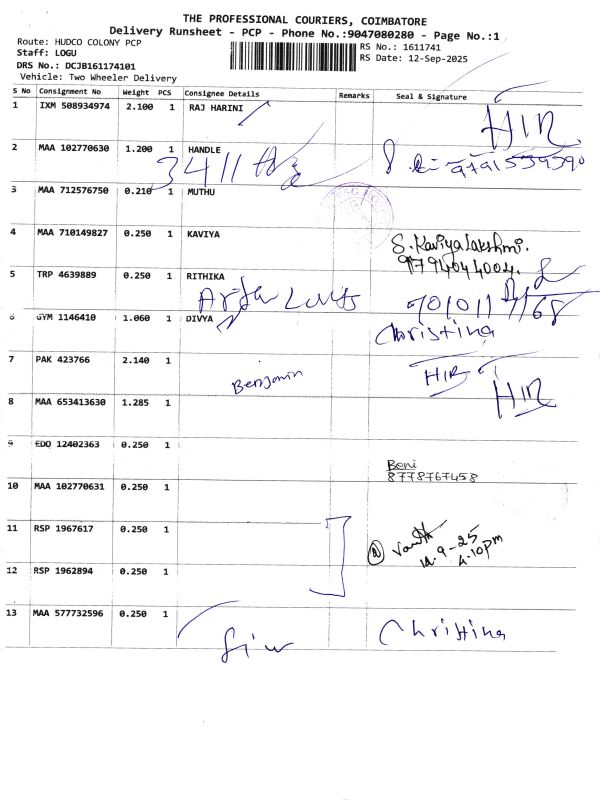 THE PROFESSIONAL COURIERS, COIMBATORE
Delivery Runsheet - PCP - Phone No.:9047080280 - Page No.:1
Route: HUDCO COLONY PCP
Staff: LOGU
DRS No.: DCJB161174101
Vehicle: Two Wheeler Delivery
RS No.: 1611741
RS Date: 12-Sep-2025
S No Consignment No Weight PCS Consignee Details Remarks Seal & Signature
1 IXM 508934974 2.100 1 RAJ HARINI HIR
2 MAA 102770630 1.200 1 HANDLE
3411 9791539390
3 MAA 712576750 0.210 1 MUTHU
4 MAA 710149827 0.250 1 KAVIYA S. Kaviyalakshmi.
9794044004.
5 TRP 4639889 0.250 1 RITHIKA
6 GYM 1146410 1.060 1 DIVYA Christina
7 PAK 423766 2.140 1 Benjamin HIR HIR
8 MAA 653413630 1.285 1
9 EDO 12402363 0.250 1 Beni
8778767458
10 MAA 102770631 0.250 1
11 RSP 1967617 0.250 1
4.10pm
12 RSP 1962894 0.250 1
13 MAA 577732596 0.250 1 Christina